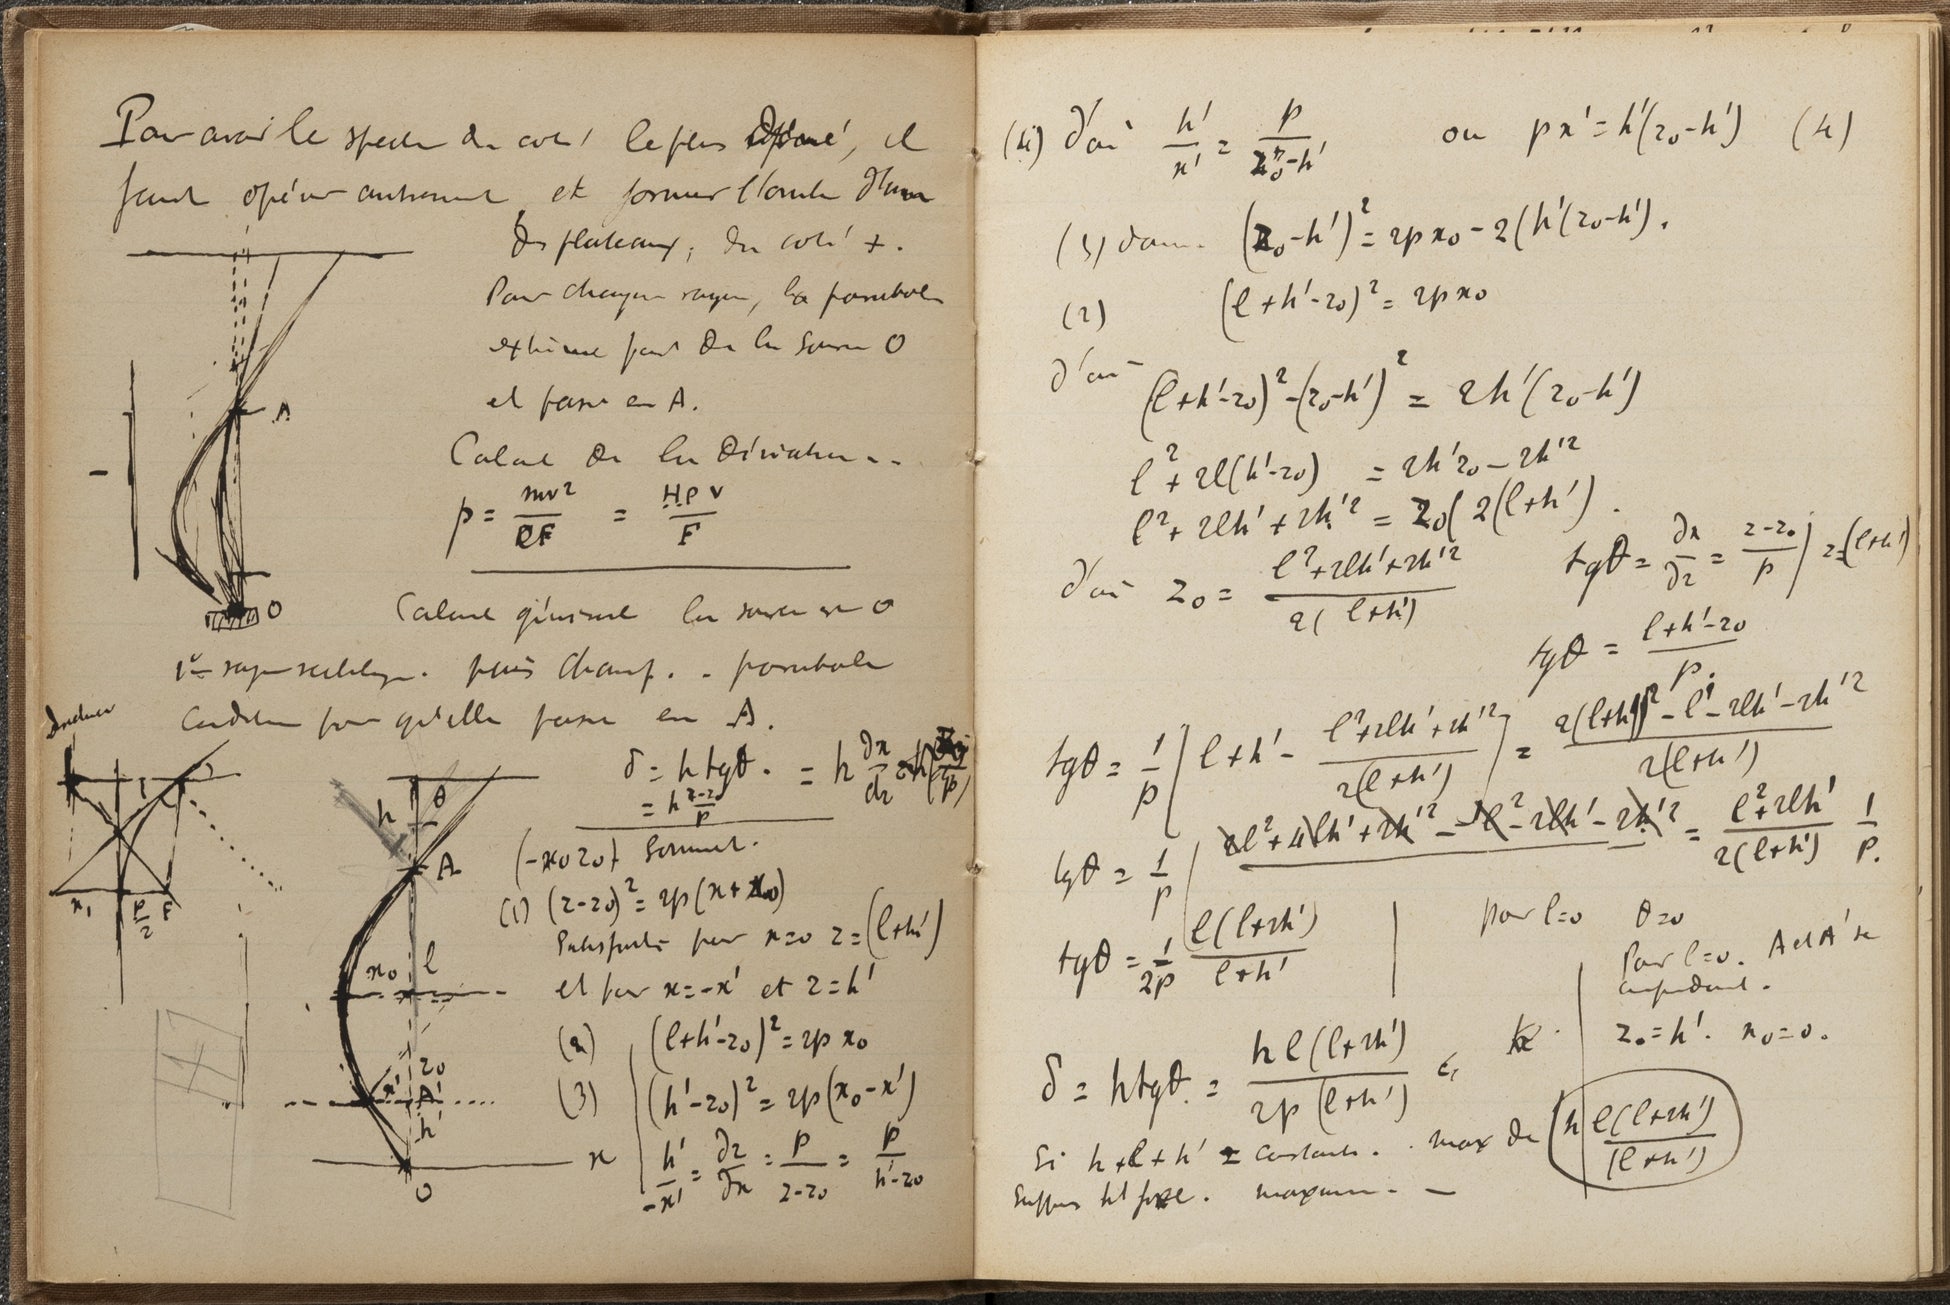 Pour avoir le spectre du coté le plus dévié, il
faut opérer autrement et former l'ombre d'un
des plateaux, du coté +.
Pour chaque rayon, la parabole
extrême part de la source O
et passe en A.
A
-
O
Calcul de la déviation - -
p = mv²/eF = Hρv/F
Calcul général la source en O
1º rayon rectiligne. puis champ . . parabole
Condition pour qu'elle passe en A.
x₁ p/2 F
δ = h tgθ . = h ∂x/dz
= h z-z₀/p
h θ
A
x₀ l
z₀
x' A'
h'
x
O
(-x₀ z₀) Sommet.
(1) (z-z₀)² = 2p(x+x₀)
Satisfaite pour x=0 z=(l+h')
et pour x=-x' et z=h'
(2) (l+h'-z₀)² = 2p x₀
(3) (h'-z₀)² = 2p(x₀-x')
h'/-x' = ∂z/∂x = p/z-z₀ = p/h'-z₀
(4) d'où h'/x' = p/z₀-h' ou px' = h'(z₀-h') (4)
(3) donne (z₀-h')² = 2px₀ - 2(h'(z₀-h').
(2) (l+h'-z₀)² = 2px₀
d'où (l+h'-z₀)² - (z₀-h')² = 2h'(z₀-h')
l² + 2l(h'-z₀) = 2h'z₀ - 2h'²
l² + 2lh' + 2h'² = z₀( 2(l+h') .
d'où z₀ = l²+2lh'+2h'²/2(l+h') tgθ = ∂x/∂z = z-z₀/p ) z=(l+h')
tgθ = l+h'-z₀/p.
tgθ = 1/p [ l+h' - l²+2lh'+2h'²/2(l+h') ] = 2(l+h')² - l² - 2lh' - 2h'²/2(l+h')
tgθ = 1/p ( 2l²+4lh'+2h'² - l² - 2lh' - 2h'² = l²+2lh'/2(l+h') 1/p.
tgθ = 1/2p l(l+2h')/l+h'
pour l=0 θ=0
Pour l=0. A et A' se
confondent.
z₀=h'. x₀=0.
δ = h tgθ. = h l(l+2h')/2p(l+h')
Si h+l+h' = constante. max de (h l(l+2h')/(l+h')
Suppos h' fixe. maximum - —